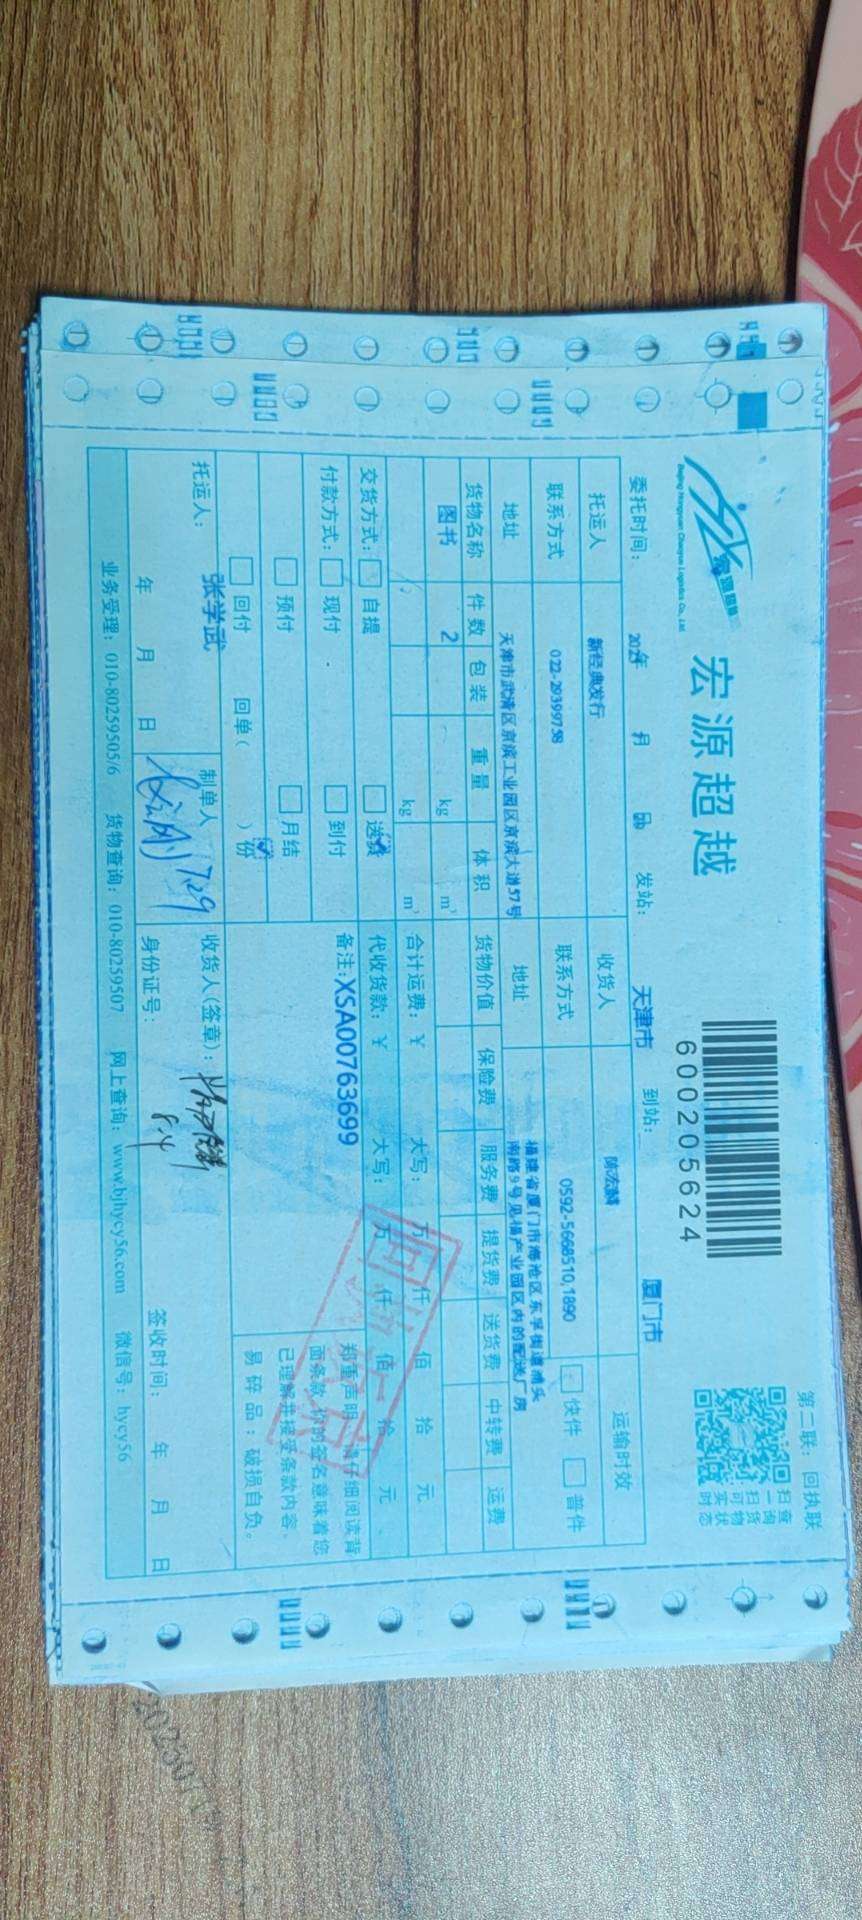 宏源超越
Beijing Hongyuan Chaoyue Logistics Co., Ltd
600205624
第二联：回执联
扫一扫可买
查询货物状态
委托时间： 年 月 发站： 天津市 到站： 厦门市
托运人 新经典发行 收货人 陈宏麟 运输时效
联系方式 022-29399758 联系方式 0592-5668510,1890 快件 普件
地址 天津市武清区京滨工业园区京滨大道57号 地址 福建省厦门市海沧区东孚街道浦头
南路9号见福产业园区内的配送厂房
货物名称 件数 包装 重量 体积 货物价值 保险费 服务费 提货费 送货费 中转费 运费
图书 2 kg m³
kg m³ 合计运费：￥ 大写： 万 仟 佰 拾 元
交货方式： 自提 送货 代收货款：￥ 大写： 万 仟 佰 拾 元
付款方式： 现付 到付 备注：XSA00763699
预付 月结
回付 回单（ ）份
郑重声明：请仔细阅读背
面条款，你的签名意味着您
已理解并接受条款内容。
易碎品：破损自负。
托运人： 张学武 制单人 收货人(签章)：
7.29 8.4
年 月 日 身份证号： 签收时间： 年 月 日
业务受理：010-80259505/6 货物查询：010-80259507 网上查询：www.bjhycy56.com 微信号：hycy56